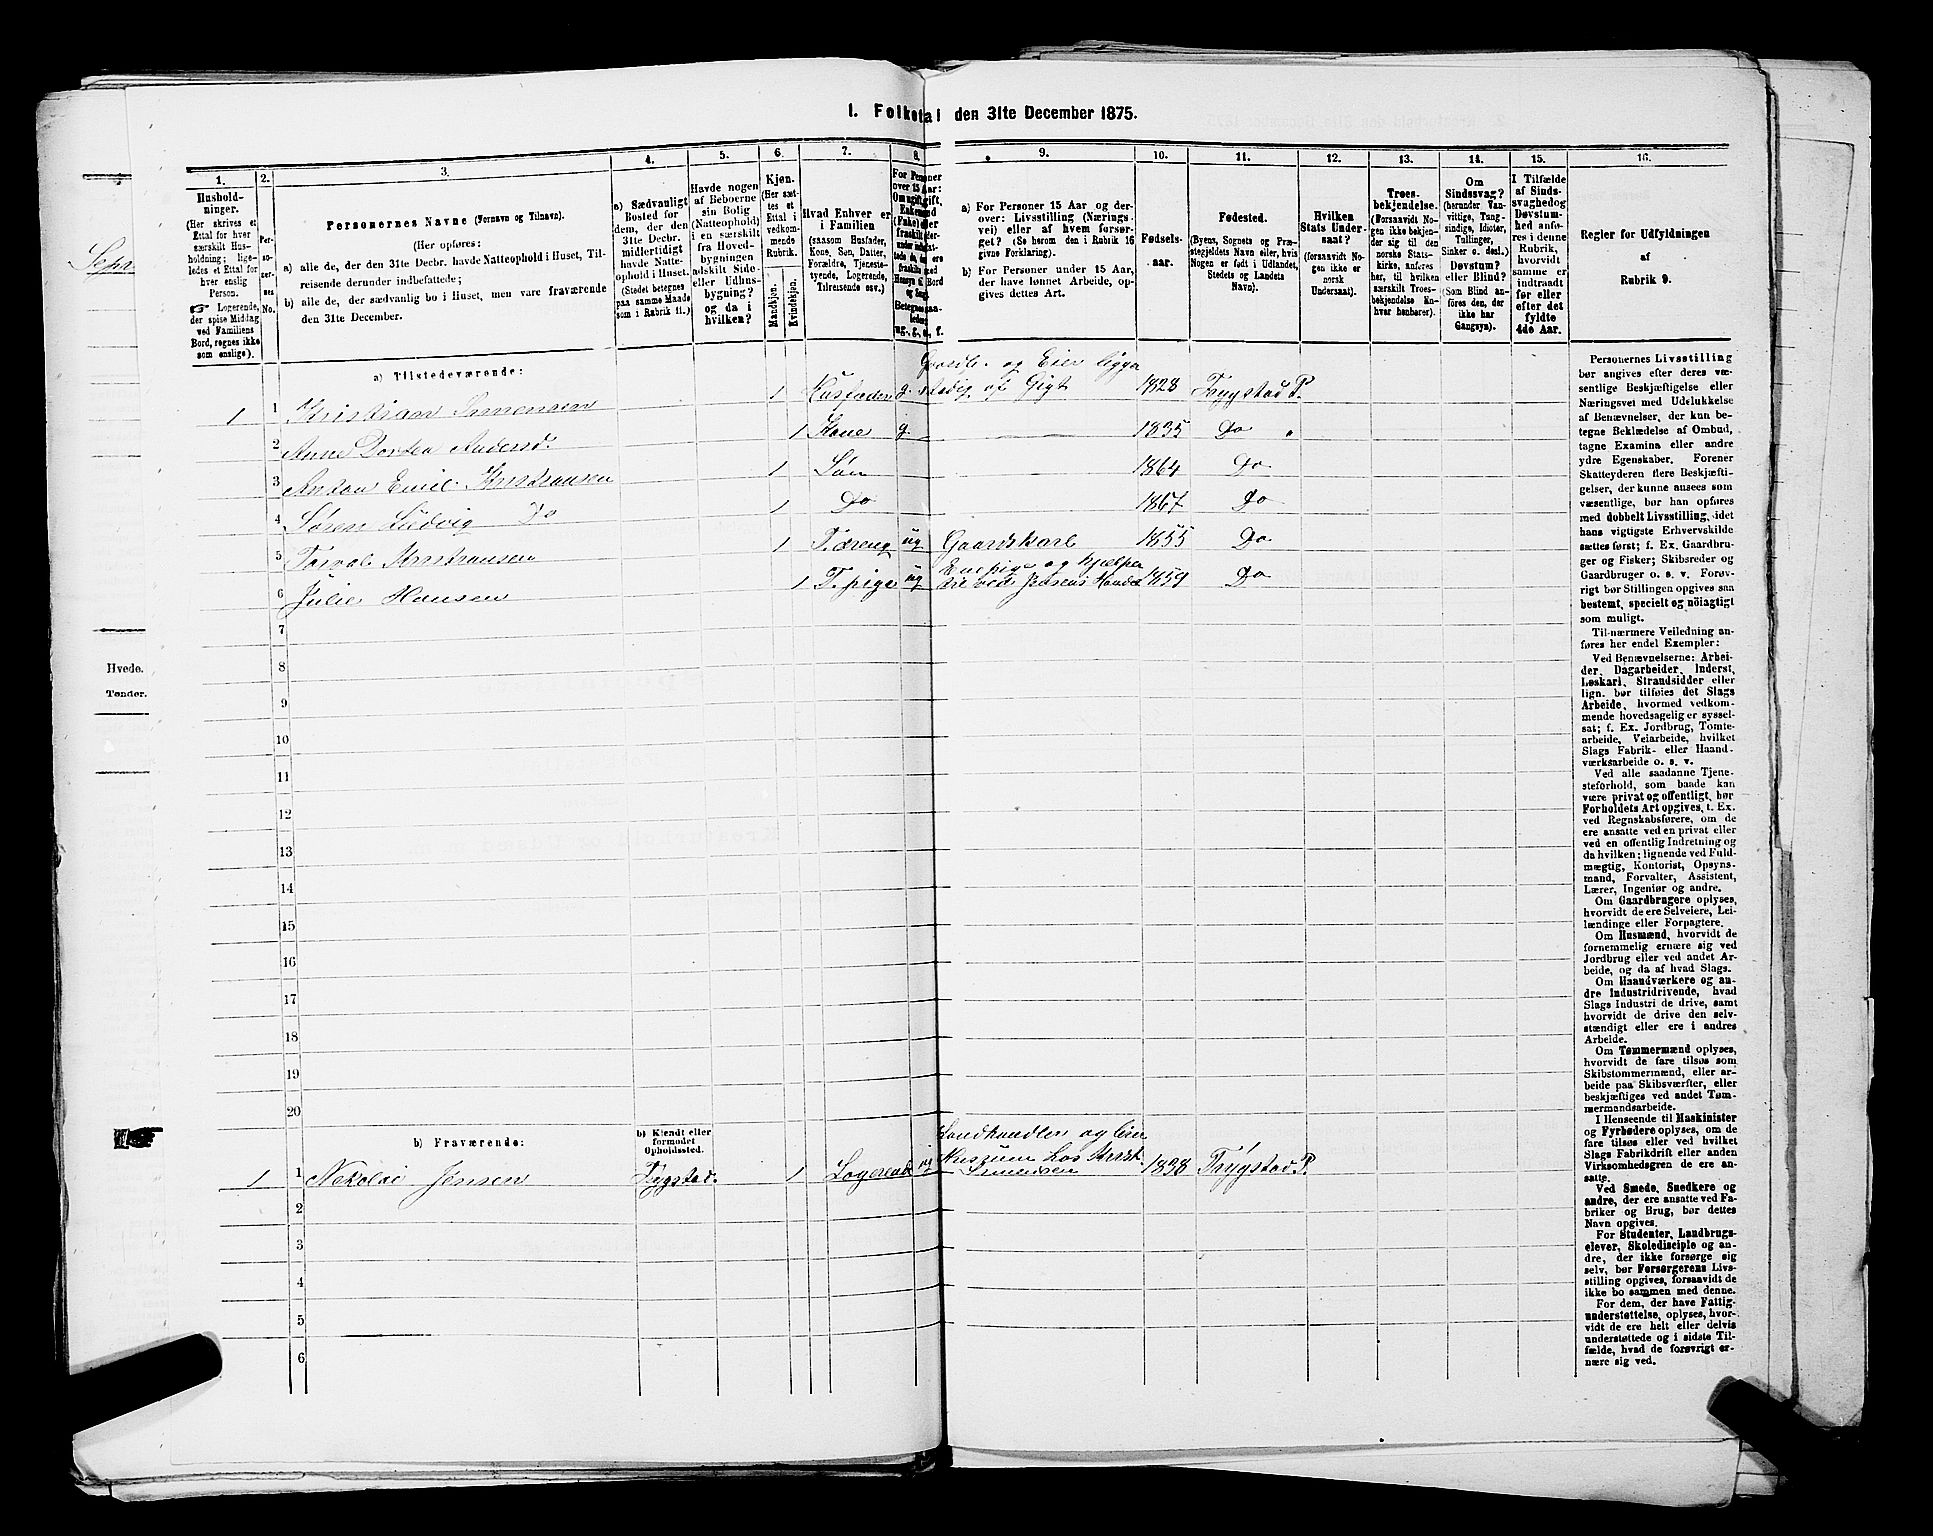 1. Folketal den 31te December 1875.
1.
Hushold-
ninger.
(Her skrives et
Ettal for hver
særskilt Hus-
holdning; lige-
ledes et Ettal for
hver enslig
Person.
Logerende,
der spise Middag
ved Familiens
Bord, regnes ikke
som enslige).
2.
Per-
soner-
nes
No.
3.
Personernes Navne (Fornavn og Tilnavn).
(Her opføres:
a) alle de, der den 31te Decbr. havde Natteophold i Huset, Til-
reisende derunder indbefattede;
b) alle de, der sædvanlig bo i Huset, men vare fraværende
den 31te December.
4.
a) Sædvanligt
Bosted for
dem, der den
31te Decbr.
midlertidigt
havde Natte-
ophold i Huset.
(Stedet betegnes
paa samme Maade
som i Rubrik 11.)
5.
Havde nogen
af Beboerne
sin Bolig
(Natteophold)
i en særskilt
fra Hoved-
bygningen
adskilt Side-
eller Udhus-
bygning?
og da i
hvilken?
6.
Kjøn.
(Her sæt-
tes et
Ettal i
vedkom-
mende
Rubrik.
Mandkjøn.
Kvindekjøn.
7.
Hvad Enhver er
i Familien
(saasom Husfader,
Kone, Søn, Datter,
Forældre, Tjeneste-
tyende, Logerende,
Tilreisende osv.)
8.
For Personer
over 15 Aar:
9.
a) For Personer 15 Aar og der-
over: Livsstilling (Nærings-
vei) eller af hvem forsør-
get? (Se herom den i Rubrik 16
givne Forklaring).
b) For Personer under 15 Aar,
der have lønnet Arbeide, op-
gives dettes Art.
10.
Fødsels-
aar.
11.
Fødested.
(Byens, Sognets og Præ-
stegjeldets Navn eller, hvis
Nogen er født i Udlandet,
Stedets og Landets
Navn).
12.
Hvilken
Stats Under-
saat?
(forsaavidt No-
gen ikke er
norsk
Undersaat).
13.
Troes-
bekjendelse.
(Forsaavidt No-
gen ikke bekjen-
der sig til den
norske Stats-
kirke, anføres
her, til hvilken
særskilt Troes-
bekjendelse En-
hver henhører).
14.
Om
Sindssvag?
(herunder Van-
vittige, Tung-
sindige, Idioter,
Tullinger,
Sinker o. desl.).
Døvstum?
eller Blind?
(Som Blind an-
føres den, der
ikke har
Gangsyn).
15.
I Tilfælde
af Sinds-
svaghed og
Døvstum-
hed anfø-
res i denne
Rubrik,
hvorvidt
samme er
indtraadt
før eller
efter det
fyldte
4de Aar.
16.
Regler for Udfyldningen
af
Rubrik 9.
a) Tilstedeværende:
Gaardbr. og Eier ligger
1 1 Kristian Simensen 1 Husfader g. stadig af Gigt 1828 Trygstad P.
2 Anne Dortea Andersd. 1 Kone g. 1835 Do "
3 Anton Emil Kristiansen 1 Søn 1864 Do
4 Søren Ludvig Do 1 Do 1867 Do
5 Torval Kristiansen 1 T. dreng ug Gaardskarl 1855 Do
6 Julie Hansen 1 T. pige ug 1859 Do
7
8
9
10
11
12
13
14
15
16
17
18
19
20
b) Fraværende:
b) Kjendt eller
formodet
Opholdssted.
Landhandler og Eier
1 1 Nikolai Jensen Trygstad. 1 Logerende ug Simensen 1838 Trygstad P.
2
3
4
5
6
Personernes Livsstilling
bør angives efter deres væ-
sentlige Beskjæftigelse eller
Næringsvei med Udelukkelse
af Benævnelser, der kun be-
tegne Beklædelse af Ombud,
tagne Examina eller andre
ydre Egenskaber. Forener
Skatteyderen flere Beskjæfti-
gelser, der kunne ansees som
væsentlige, bør han opføres
med dobbelt Livsstilling, idet
hans vigtigste Erhvervskilde
sættes først; f. Ex. Gaardbru-
ger og Fisker; Skibsreder og
Gaardbruger o. s. v. Forøv-
rigt bør Stillingen opgives saa
bestemt, specielt og nøiagtigt
som muligt.
Til nærmere Veiledning an-
føres her endel Exempler:
Ved Benævnelserne: Arbei-
der, Dagarbeider, Inderst,
Løskarl, Strandsidder eller
lign. bør tilføies det Slags
Arbeide, hvormed vedkom-
mende hovedsagelig er syssel-
sat; f. Ex. Jordbrug, Tomte-
arbeide, Veiarbeide, hvilket
Slags Fabrik- eller Haand-
værksarbeide o. s. v.
Ved alle saadanne Tjene-
steforhold, som baade kan
være privat og offentligt, bør
Forholdets Art opgives, t. Ex.
ved Regnskabsførere, om de
ere ansatte ved en privat eller
ved en offentlig Indretning og
da hvilken; lignende ved Fuld-
mægtig, Kontorist, Opsyns-
mand, Forvalter, Assistent,
Lærer, Ingeniør og andre.
Om Gaardbrugere oplyses,
hvorvidt de ere Selveiere, Lei-
lændinge eller Forpagtere.
Om Husmænd, hvorvidt de
fornemmelig ernære sig ved
Jordbrug eller ved andet Ar-
beide, og da af hvad Slags.
Om Haandværkere og an-
dre Industridrivende, hvad
Slags Industri de drive, samt
hvorvidt de drive den selv-
stændigt eller ere i andres
Arbeide.
Om Tømmermænd oplyses,
hvorvidt de fare tilsøs som
Skibstømmermænd, eller ar-
beide paa Skibsværfter, eller
beskjæftiges ved andet Tøm-
mermandsarbeide.
I Henseende til Maskinister
og Fyrbødere oplyses, om de
fare tilsøs eller ved hvilket
Slags Fabrikdrift eller anden
Virksomhedsgren de ere an-
satte.
Ved Smede, Snedkere og
andre, der ere ansatte ved Fa-
briker og Brug, bør dettes
Navn opgives.
For Studenter, Landbrugs-
elever, Skoledisciple og an-
dre, der ikke forsørge sig
selv, bør Forsørgerens Livs-
stilling opgives, forsaavidt de
ikke bo sammen med denne.
For dem, der have Fattig-
understøttelse, oplyses, hvor-
vidt de ere helt eller delvis
understøttede og i sidste Til-
fælde, hvad de forøvrigt er-
nære sig ved.
Hvede.
Tønder.